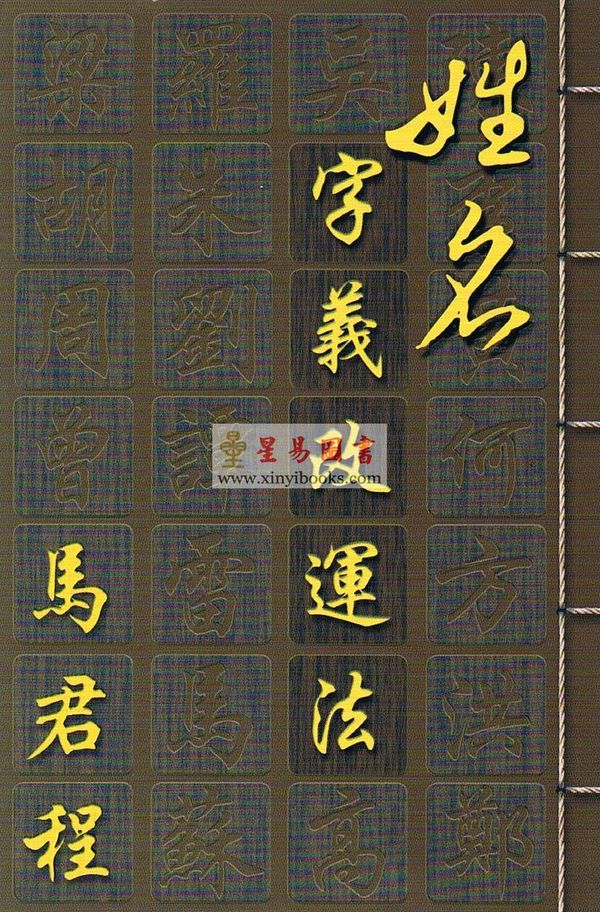 姓名
字義改運法
馬君程
星易圖書
www.xinyibooks.com
何方洪鄭
吳
高
羅朱劉譚雷馬蘇
梁胡周曾